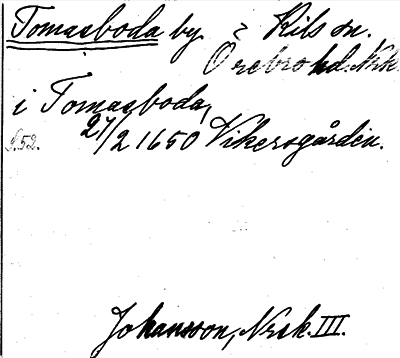 Tomasboda by. i Kils sn.
Örebro hd. Nrk.
i Tomasboda,
27/2 1650 Vikersgården.
s. 52.
Johansson, Nrk. III.